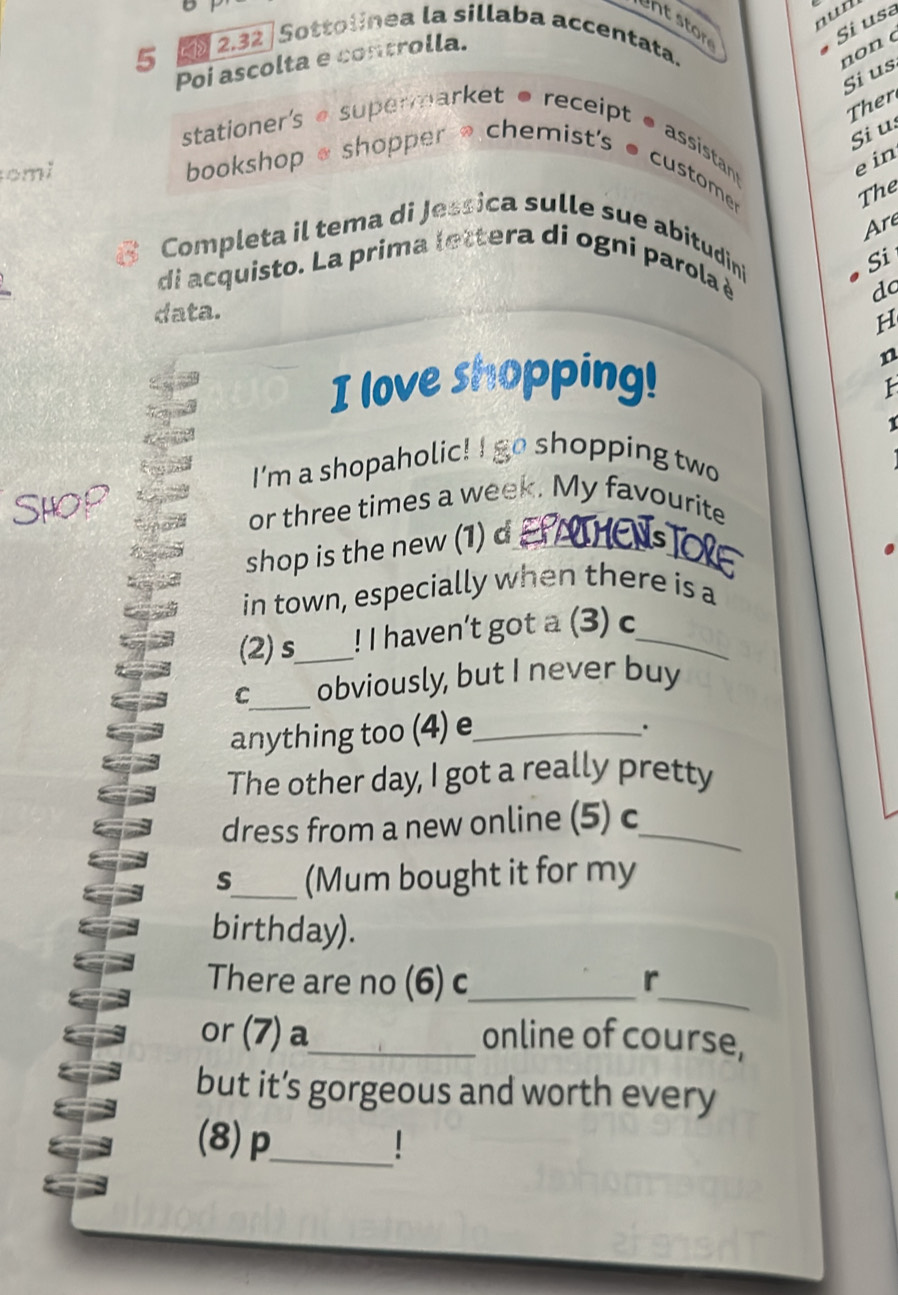 ent store
5 2.32 Sottolinea la sillaba accentata.
Poi ascolta e controlla.
stationer's • supermarket • receipt • assistant
bookshop • shopper • chemist's • customer
6 Completa il tema di Jessica sulle sue abitudini
di acquisto. La prima lettera di ogni parola è
data.
I love shopping!
I'm a shopaholic! I go shopping two
or three times a week. My favourite
shop is the new (1) d EPARTMENT s TORE
in town, especially when there is a
(2) s____! I haven't got a (3) c______
c____ obviously, but I never buy
anything too (4) e___________.
The other day, I got a really pretty
dress from a new online (5) c_______
s____ (Mum bought it for my
birthday).
There are no (6) c___________ r______
or (7) a___________ online of course,
but it's gorgeous and worth every
(8) p________!
SHOP
omi
num
• Si usa
non
Si us
Ther
Si us
e in
The
Are
• Si
do
H
n